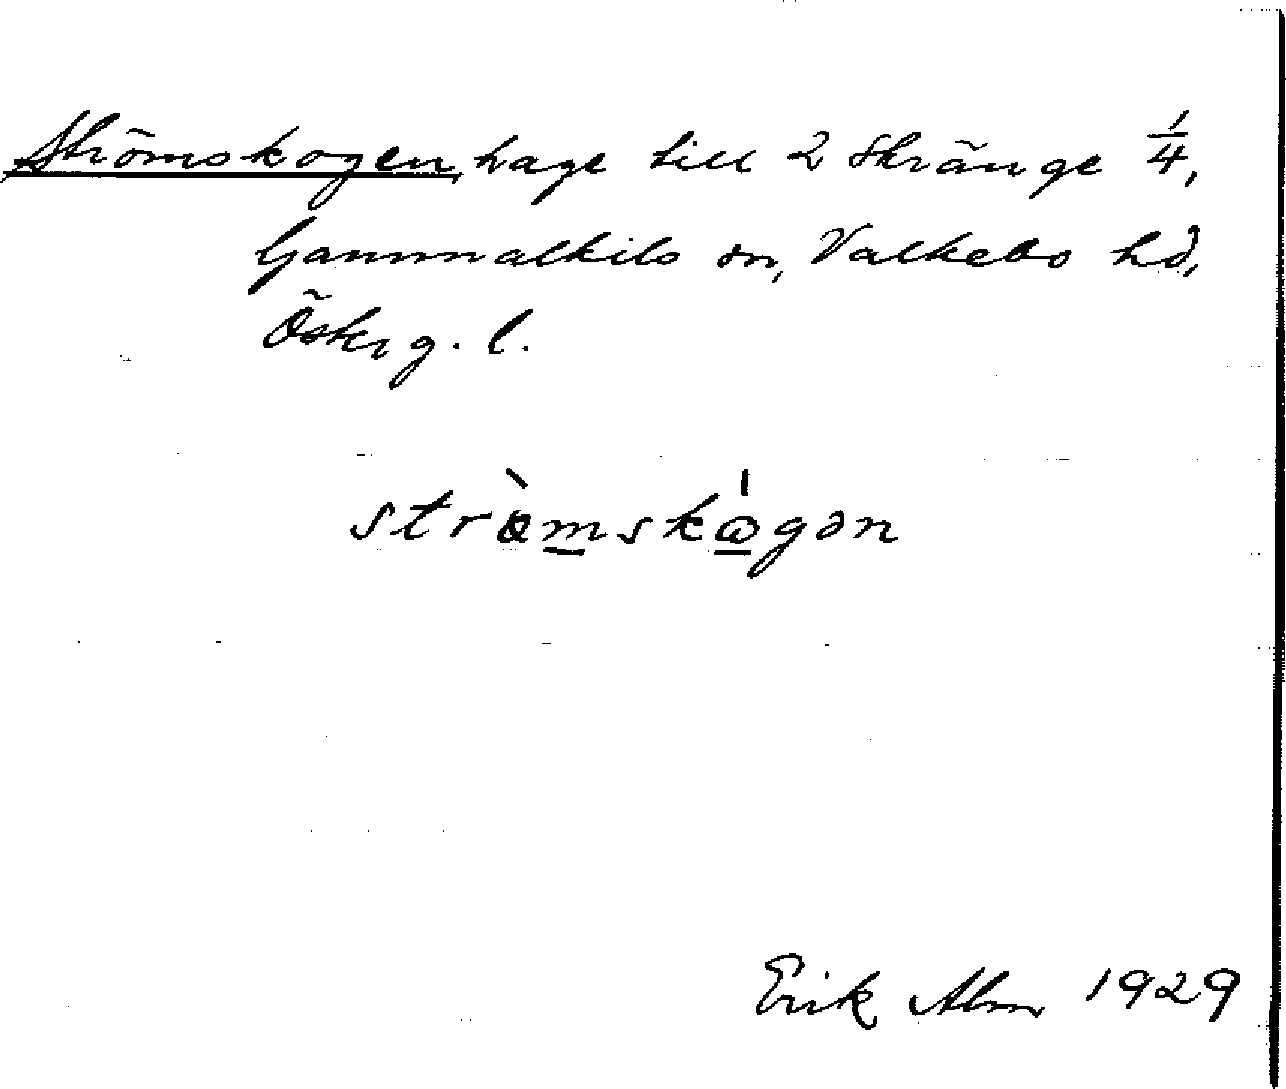 Strömskogen, hage till 2 Stränge 1/4,
Gammalkils sn, Valkebo hd,
Österg. l.
strö̀mskɷ́gən
Erik Alm 1929